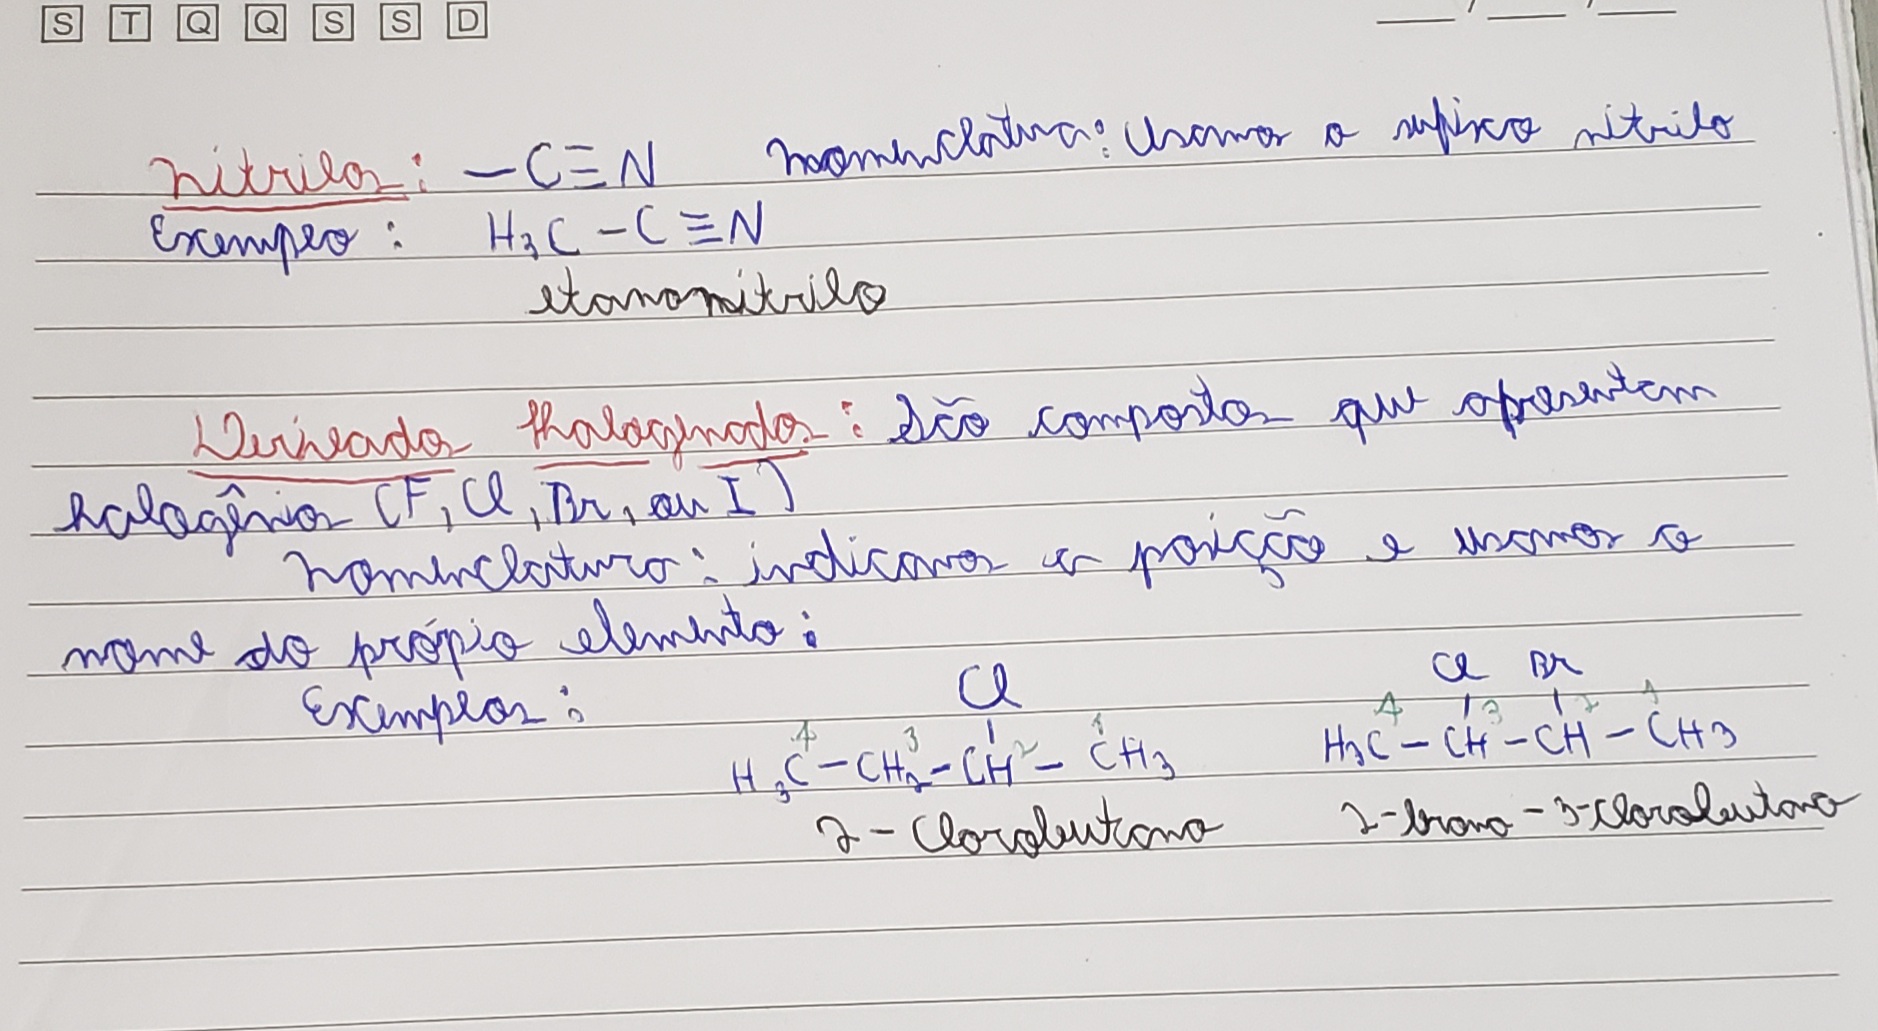 S T Q Q S S D
__/__/__
Nitrilos: —C≡N Nomenclatura: Usamos o sufixo nitrilo
Exemplo: H₃C – C ≡ N
etanonitrilo
Derivados Halogenados: São compostos que apresentam
halogênios (F, Cl, Br, ou I)
Nomenclatura: indicamos a posição e usamos o
nome do própio elemento:
Exemplos: Cl Cl Br
4 3 2 1 4 3 2 1
H₃C – CH₂ – CH – CH₃ H₃C – CH – CH – CH3
2 – Clorobutano 2-bromo-3-Clorobutano